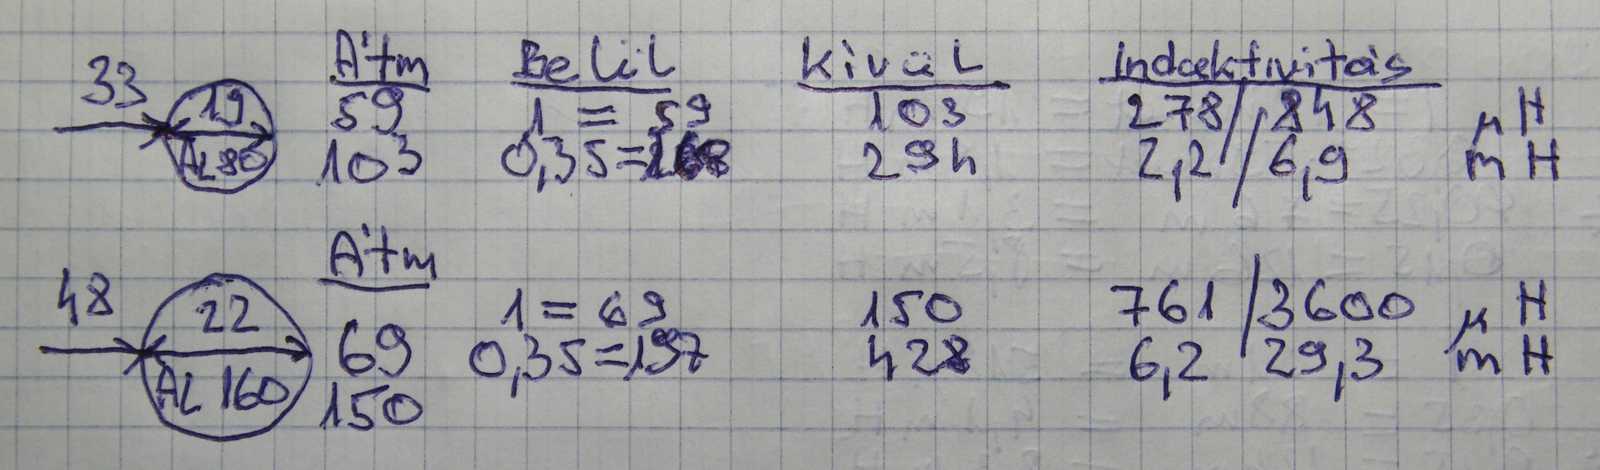 Átm Belül Kivül Induktivitás
33 19 59 1 = 59 103 278 / 848 μ H
AL 80 103 0,35 = 168 294 2,2 / 6,9 m H
Átm
48 22 1 = 69 150 761 / 3600 μ H
69 0,35 = 197 428 6,2 29,3 m H
AL 160 150